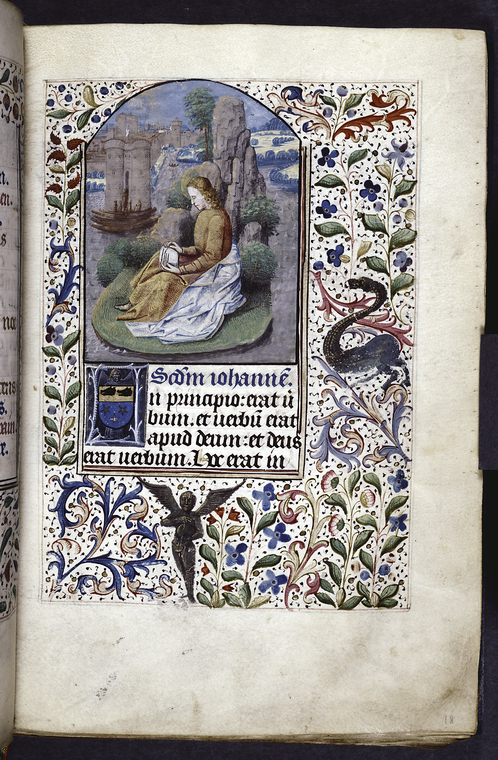 n.
en.
s
nce
s.
r.
Scdm iohanne͂.
n principio: erat u͂
bum. et uerbu͂ erat
apud deum: et deus
erat uerbum. Hoc erat in
18